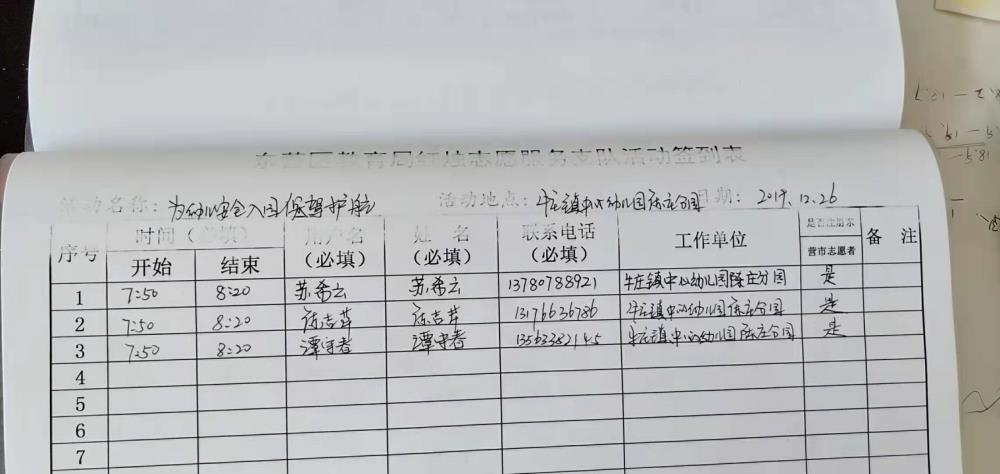 东营区教育局红烛志愿服务支队活动签到表
活动名称: 为幼儿安全入园保驾护航 活动地点: 牛庄镇中心幼儿园陈庄分园 日期: 2019.12.26
序号 时间(必填) 用户名(必填) 姓 名(必填) 联系电话(必填) 工作单位 是否注册东营市志愿者 备 注
开始 结束
1 7:50 8:20 苏希云 苏希云 13780788921 牛庄镇中心幼儿园陈庄分园 是
2 7:50 8:20 陈吉芹 陈吉芹 13176636786 牛庄镇中心幼儿园陈庄分园 是
3 7:50 8:20 谭守者 谭守者 13563382145 牛庄镇中心幼儿园陈庄分园 是
4
5
6
7